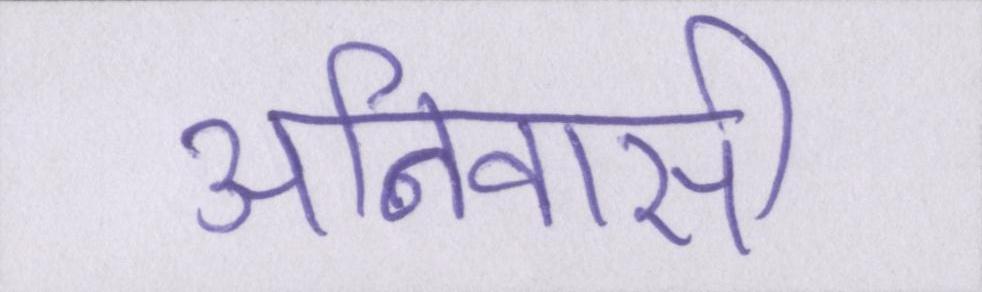 अनिवासी